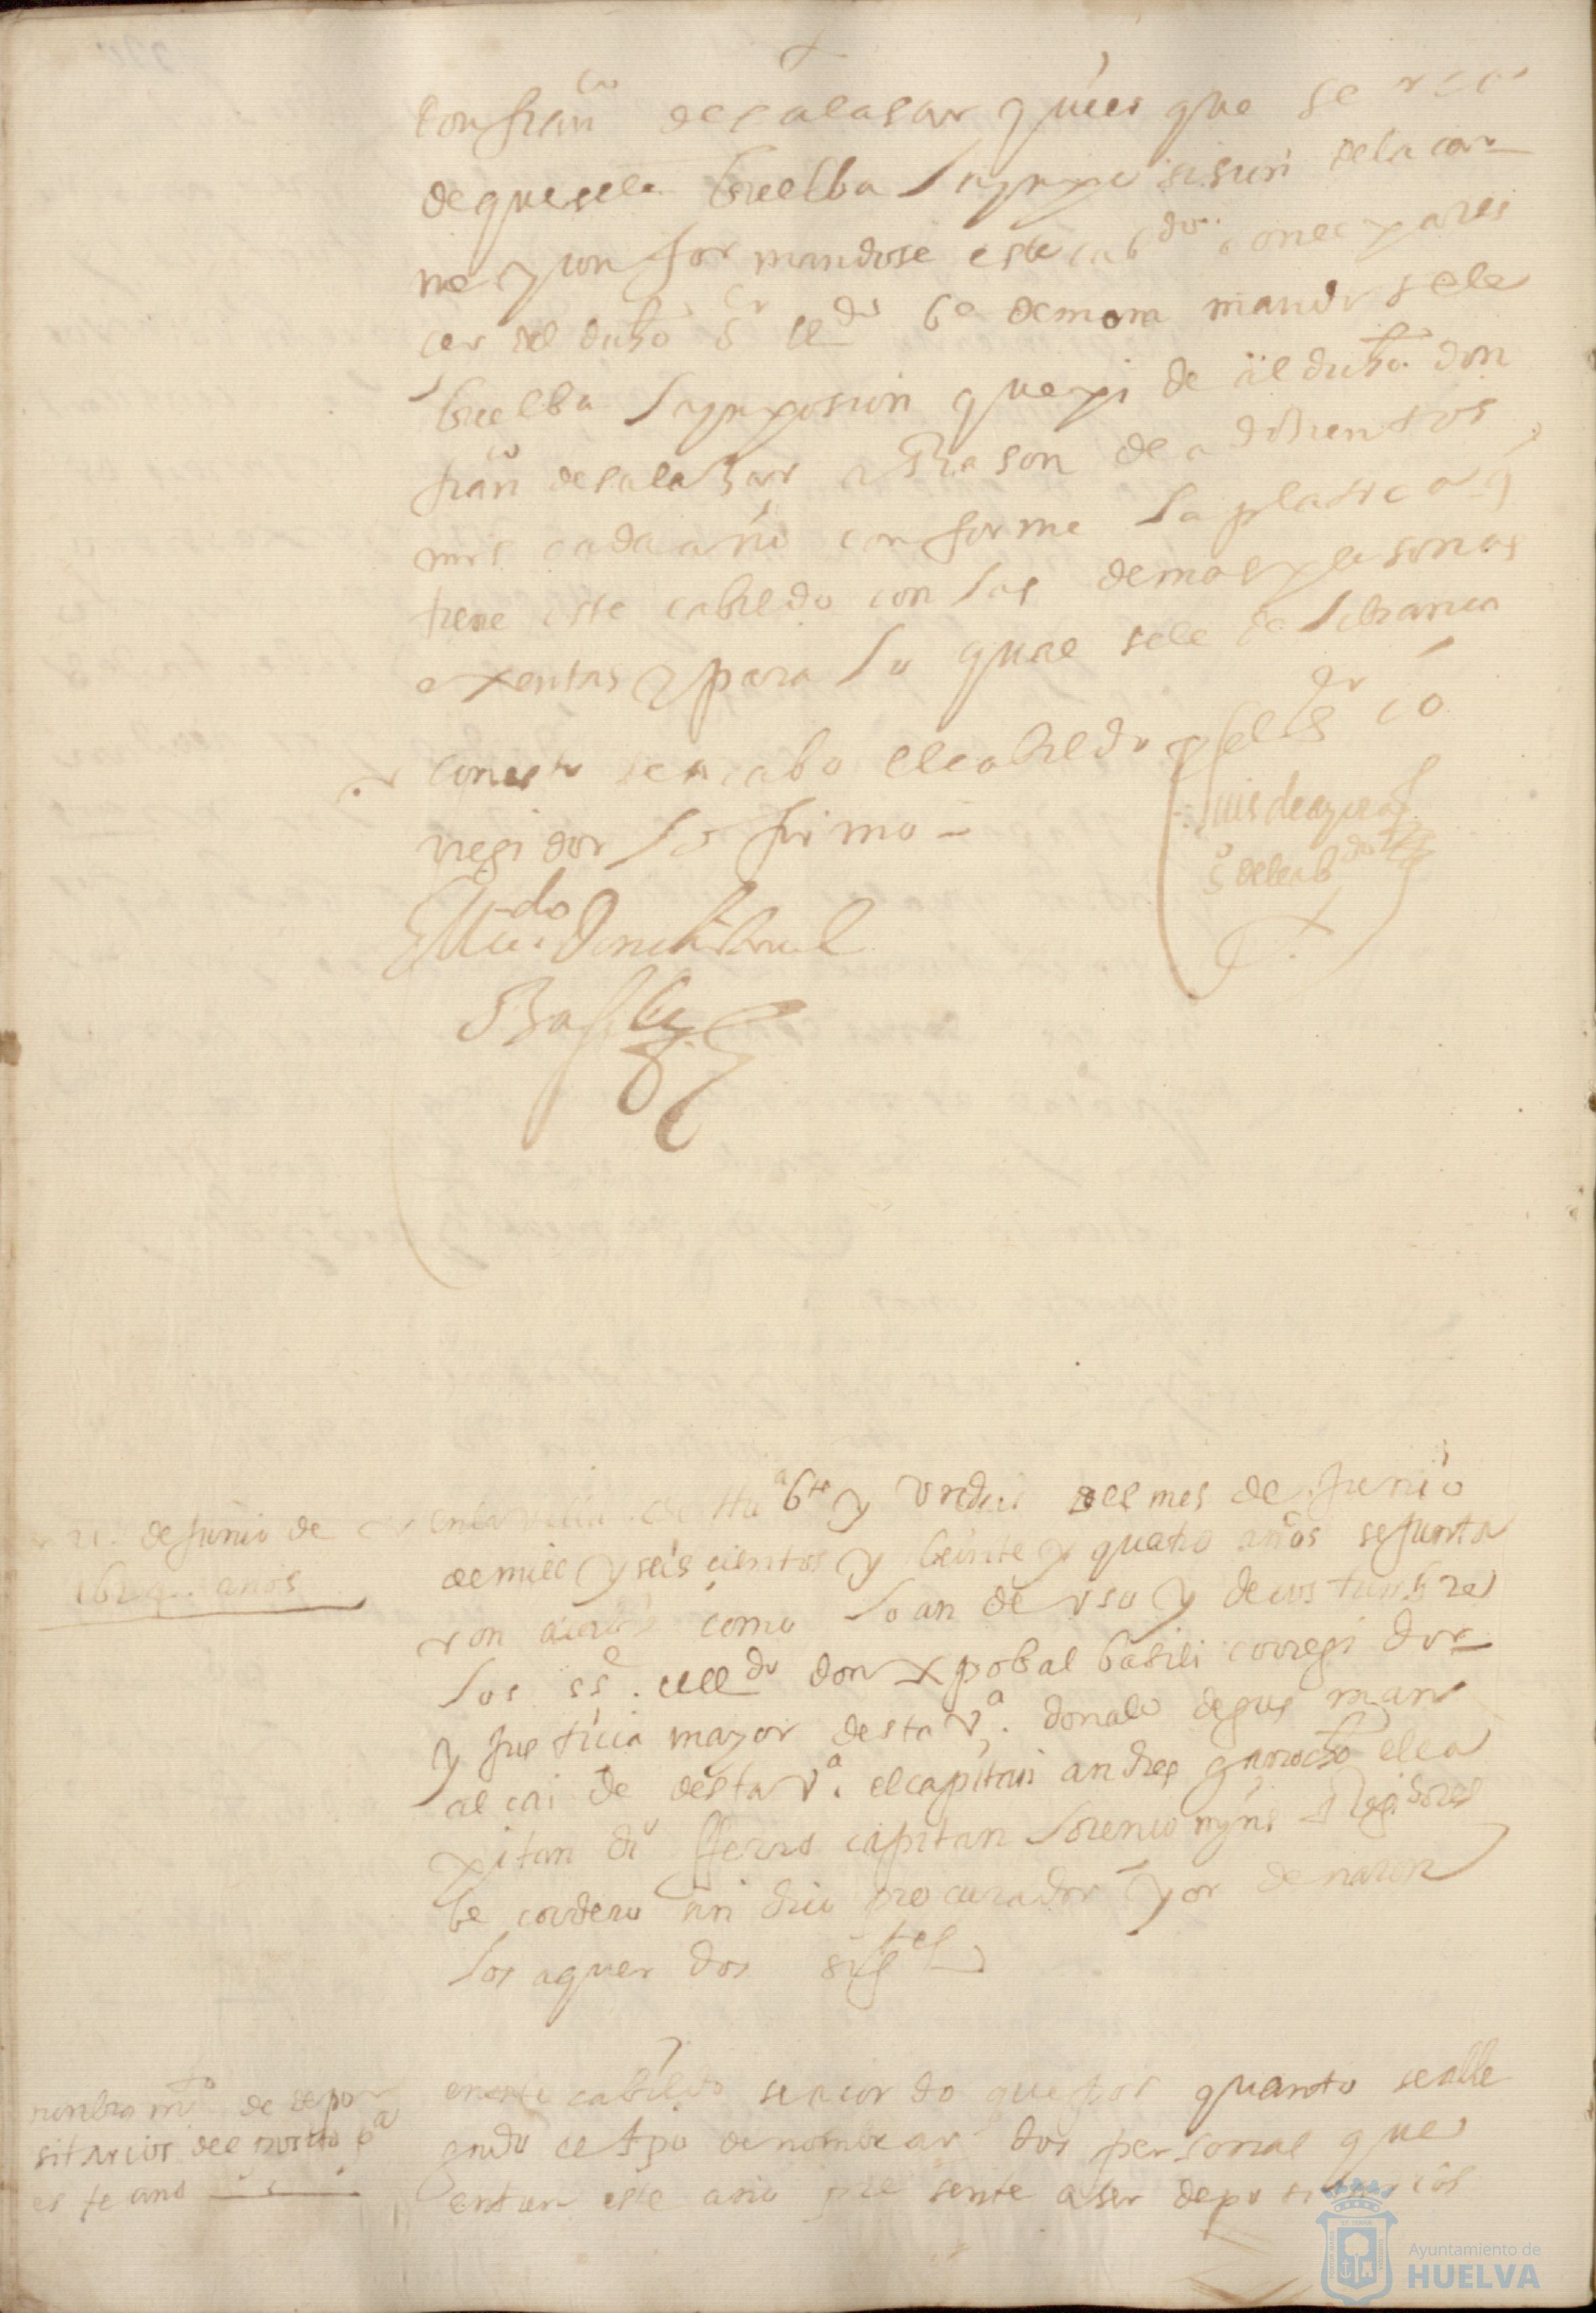 con franco de salasar y ües que se
de que se le buelba la ynposision de la car
ne y conformandose este cabdo con el pares
cer del dicho sr lldo ba de mora mando se le
buelba la ynposision que pide el dicho don
franco de salazar a Rason de a dosientos
mrs cada año conforme la platica q
tiene este cabildo con las demas personas
exentas y para lo qual se le de libranca
con esto se acabo el cabildo y el sr co
rregidor lo firmo
luis de
so del cabdo
Elldo Don
21 de junio de
1624 años
en la villa de Hua bte y un dias del mes de junio
de mill y seiscientos y beinte y quatro años se junta
ron a cabdo como lo an de uso y de costunbres
los ss. lldo don xpobal basili corregidor
y justicia mayor desta va. donalo de gusman
alcaide desta va. el capitan andres garrocho el ca
pitan do fierro capitan lorenco mŷns Regidores
be cordero sindico procurador
los aquerdos sigtes
nonbramto de depo
sitarios del posito pa
este año
en este cabildo se acordo que por quanto se alle
gado el tpo de nombrar dos personas que
entren este año presente a ser depositarios
Ayuntamiento de
HUELVA